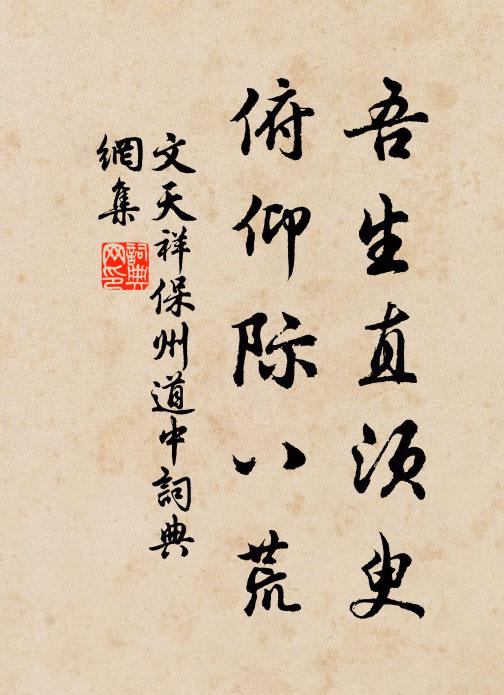 吾生直须臾
俯仰际八荒
文天祥保州道中詞典
網集
詞典网印